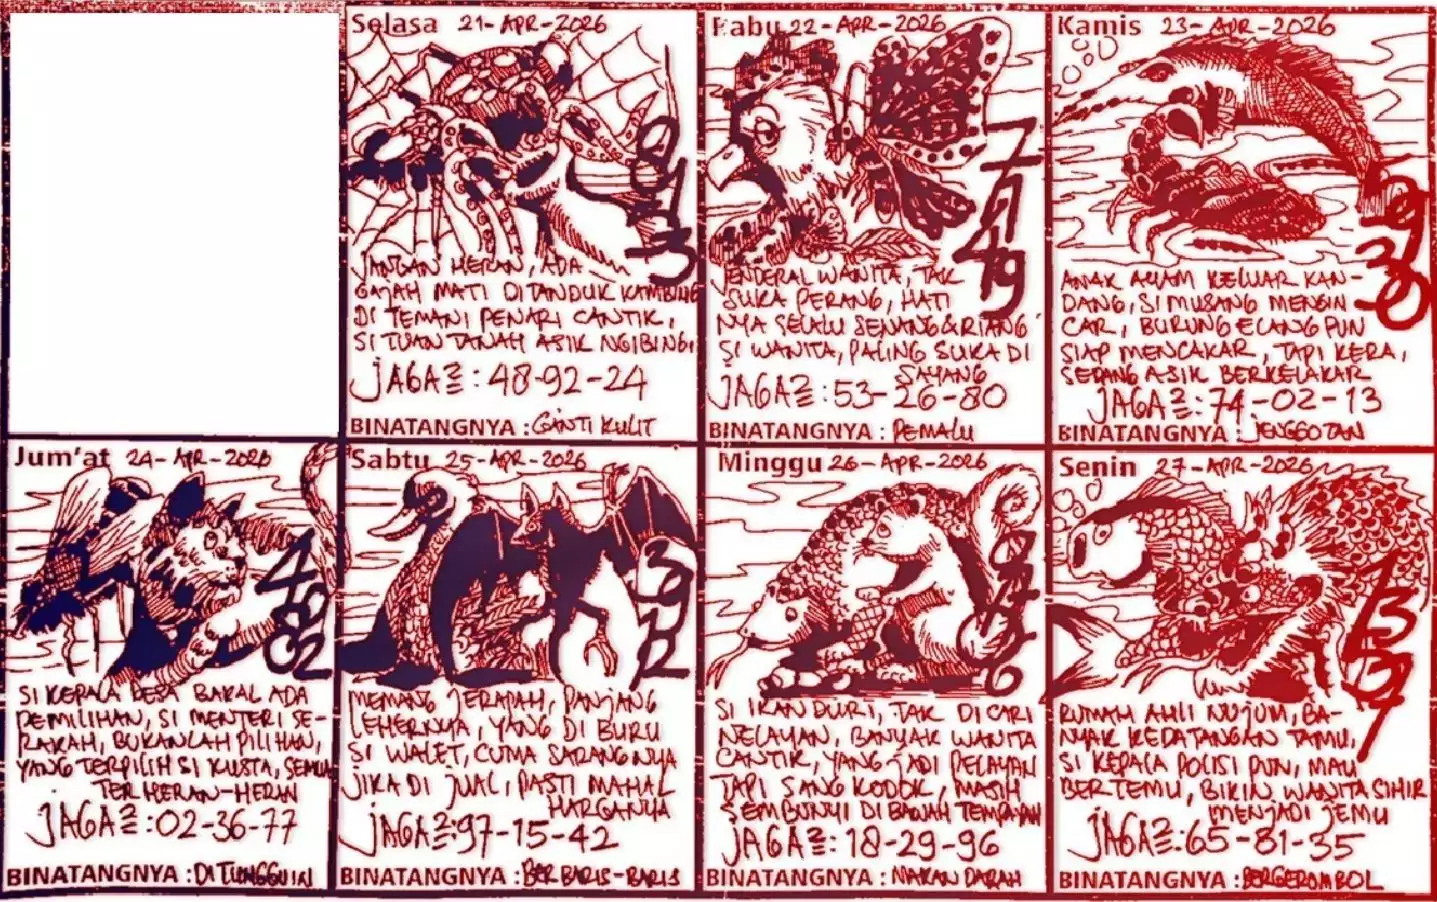 Selasa 21-APR-2026
JANGAN HERAN, ADA
GAJAH MATI DITANDUK KAMBING
DI TEMANI PENARI CANTIK,
SI TUAN TANAH ASIK NGIBING.
JAGA2 : 48-92-24
BINATANGNYA : GANTI KULIT
Rabu 22-APR-2026
JENDERAL WANITA, TAK
SUKA PERANG, HATI
NYA SELALU SENANG & RIANG
SI WANITA, PALING SUKA DI
SAYANG
JAGA2 : 53-26-80
BINATANGNYA : PEMALU
Kamis 23-APR-2026
ANAK AYAM KELUAR KAN-
DANG, SI MUSANG MENGIN
CAR, BURUNG ELANG PUN
SIAP MENCAKAR, TAPI KERA,
SEDANG ASIK BERKELAKAR
JAGA2 : 74-02-13
BINATANGNYA : JENGGOTAN
Jum'at 24-APR-2026
SI KEPALA DESA BAKAL ADA
PEMILIHAN, SI MENTERI SE-
RAKAH, BUKANLAH PILIHAN,
YANG TERPILIH SI KUSTA, SEMUA
TERHERAN-HERAN
JAGA2 : 02-36-77
BINATANGNYA : DITUNGGUIN
Sabtu 25-APR-2026
MEMANG JERAPAH, PANJANG
LEHERNYA, YANG DI BURU
SI WALET, CUMA SARANGNYA
JIKA DI JUAL, PASTI MAHAL
HARGANYA
JAGA2 : 97-15-42
BINATANGNYA : BERBARIS-BARIS
Minggu 26-APR-2026
SI IKAN DURI, TAK DICARI
NELAYAN, BANYAK WANITA
CANTIK, YANG JADI PELAYAN
TAPI SANG KODOK, MASIH
SEMBUNYI DI BAWAH TEMPAYAN
JAGA2 : 18-29-96
BINATANGNYA : MAKAN DARAH
Senin 27-APR-2026
RUMAH AHLI NUJUM, BA-
NYAK KEDATANGAN TAMU,
SI KEPALA POLISI PUN, MAU
BERTEMU, BIKIN WANITA SIHIR
MENJADI JEMU
JAGA2 : 65-81-35
BINATANGNYA : BERGEROMBOL